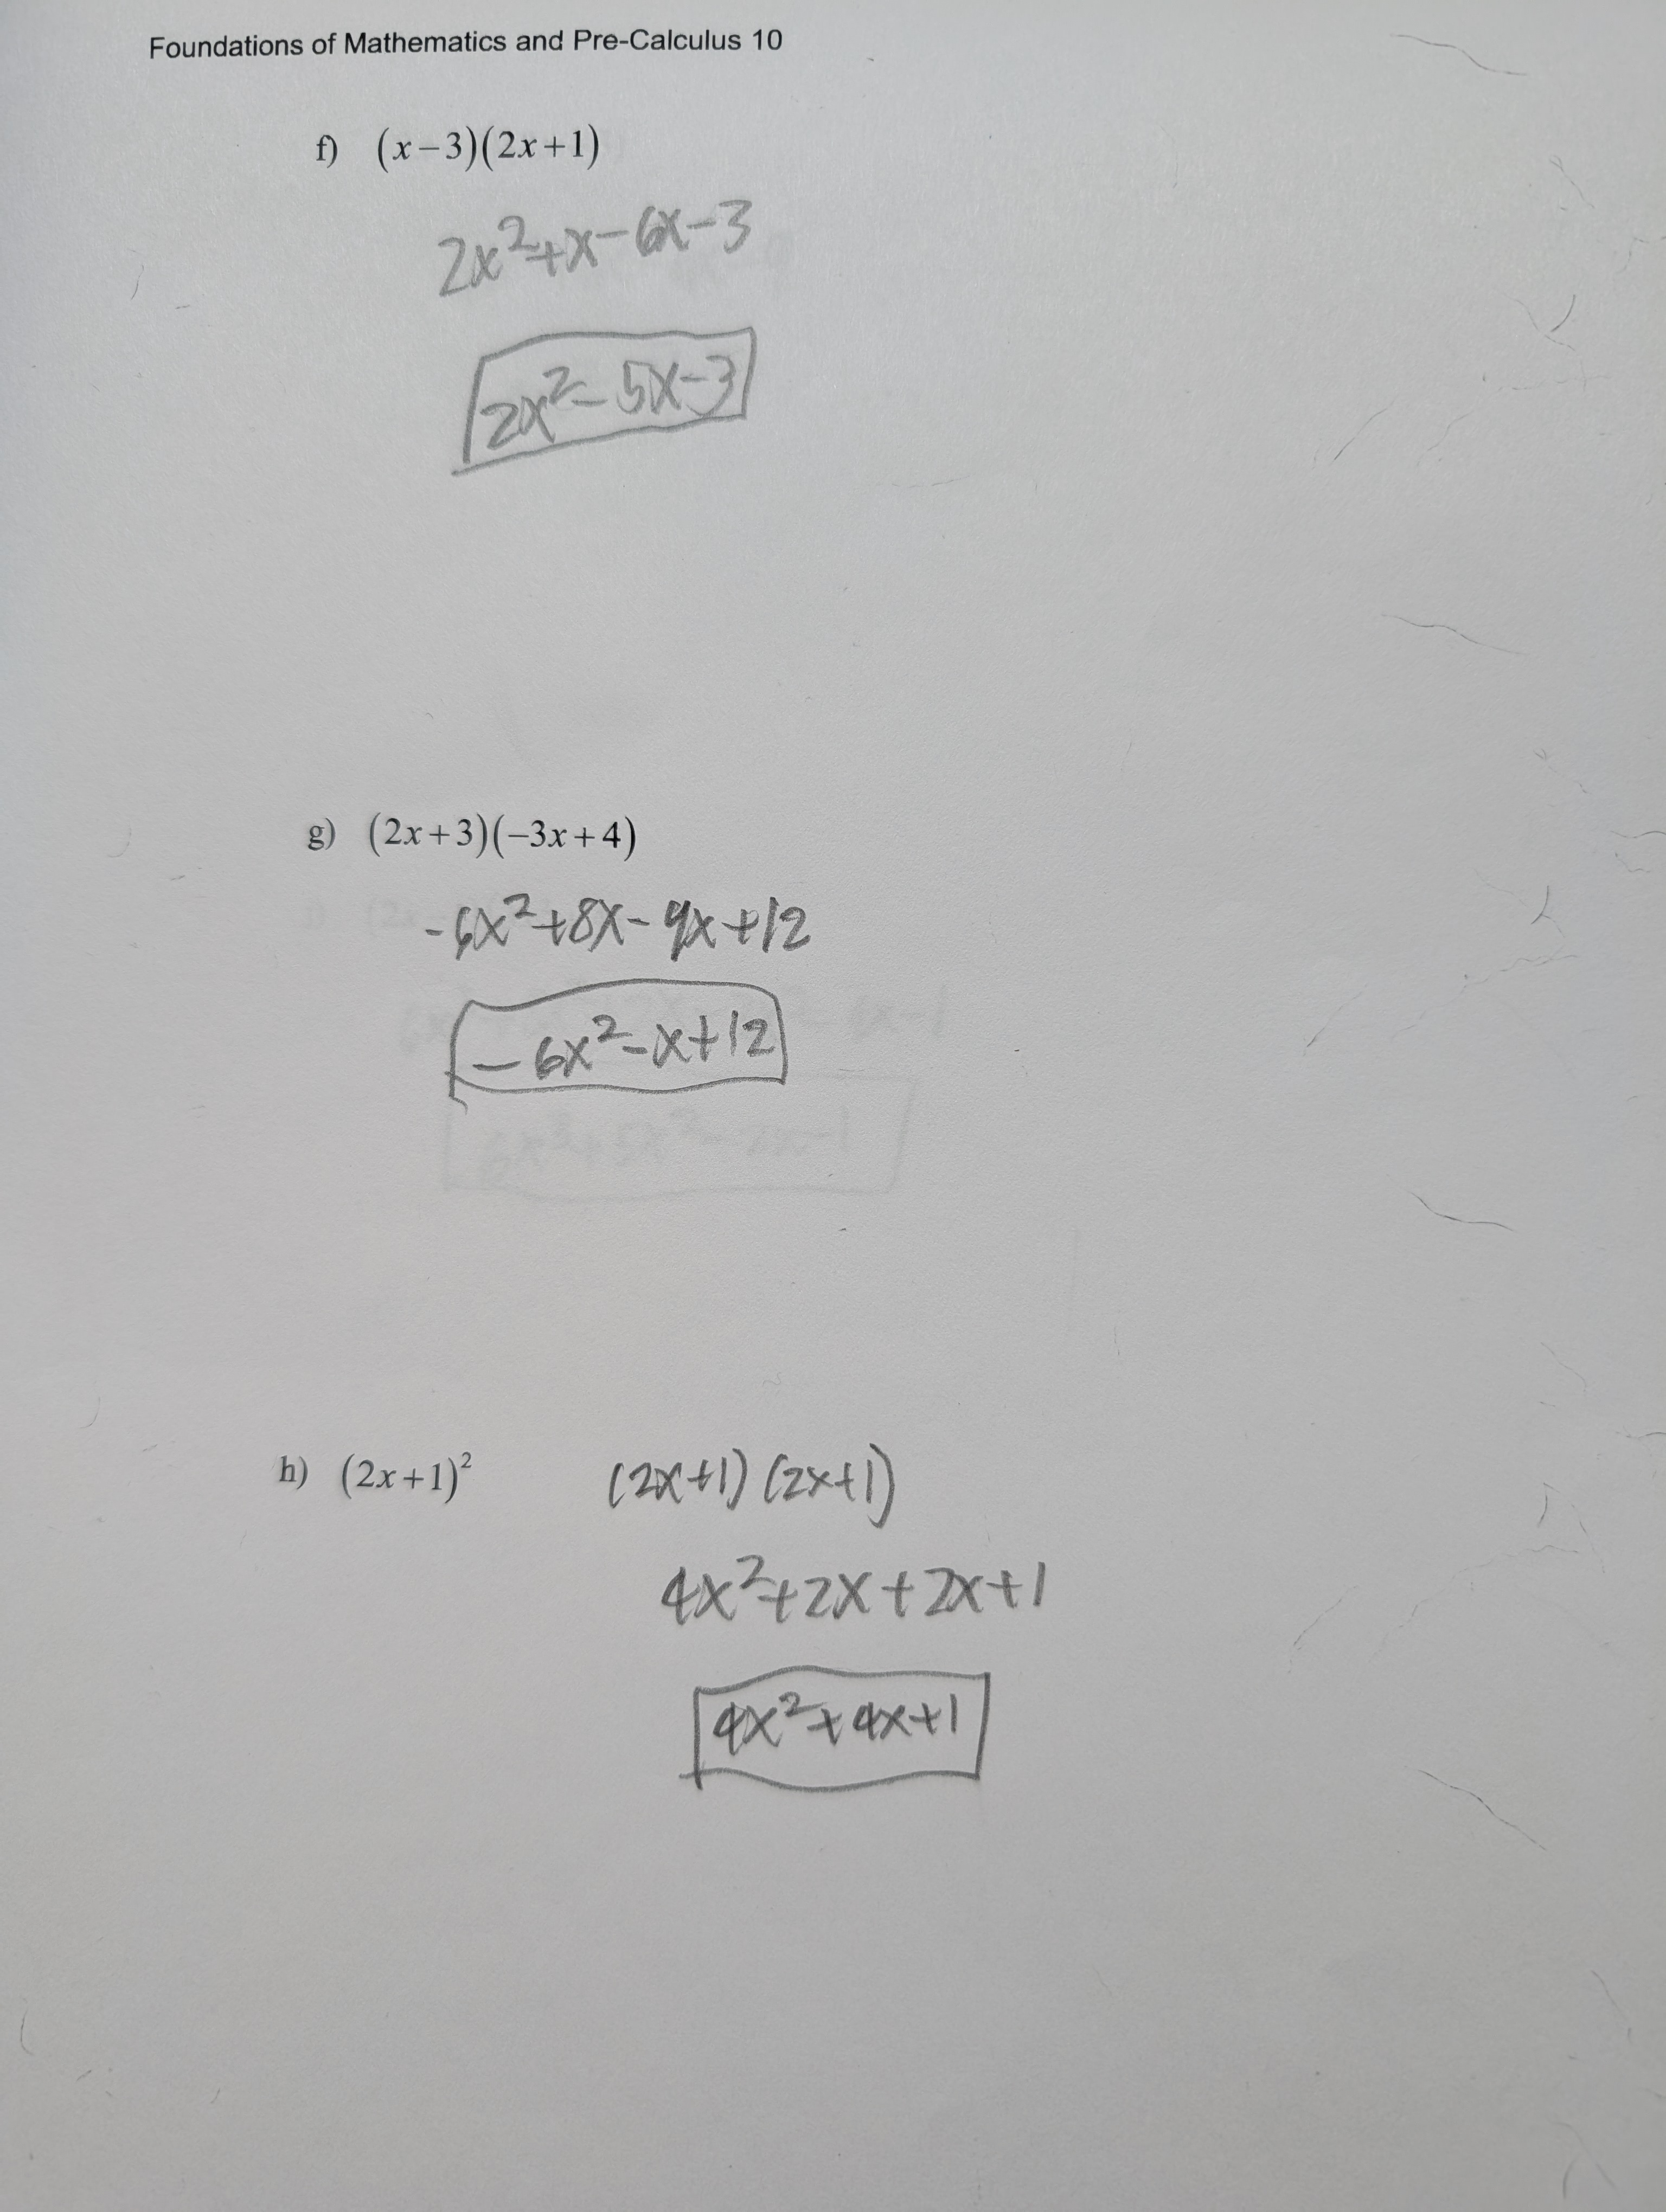 Foundations of Mathematics and Pre-Calculus 10
f) (x−3)(2x+1)
2x²+x−6x−3
2x²−5x−3
g) (2x+3)(−3x+4)
-6x²+8x−9x+12
−6x²−x+12
h) (2x+1)² (2x+1)(2x+1)
4x²+2x+2x+1
4x²+4x+1